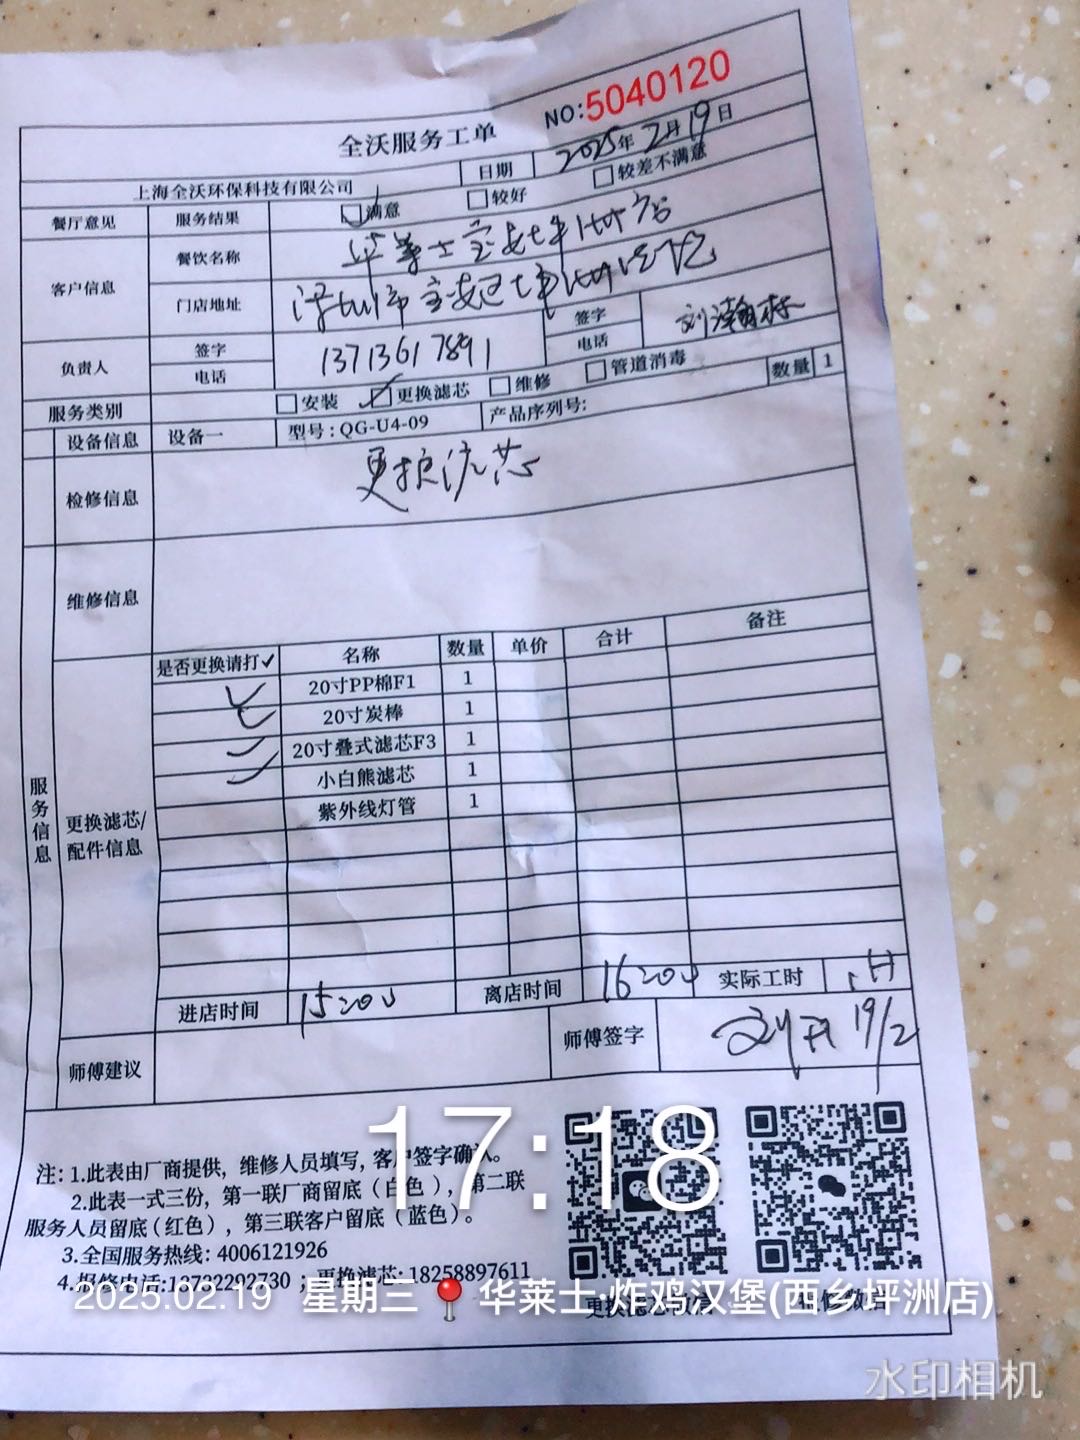 NO:5040120
全沃服务工单
日期 2025年2月19日
上海全沃环保科技有限公司
餐厅意见 服务结果 满意 较好 较差不满意
客户信息 餐饮名称 华莱士宝安坪洲店
门店地址 深圳市宝安区坪洲
负责人 签字 签字 刘瀚栋
电话 13713617891 电话
服务类别 安装 更换滤芯 维修 管道消毒
设备信息 设备一 型号:QG-U4-09 产品序列号: 数量 1
检修信息 更换滤芯
维修信息
服务信息
更换滤芯/配件信息
是否更换请打✓ 名称 数量 单价 合计 备注
✓ 20寸PP棉F1 1
✓ 20寸炭棒 1
✓ 20寸叠式滤芯F3 1
✓ 小白熊滤芯 1
紫外线灯管 1
进店时间 15:00 离店时间 16:00 实际工时
师傅建议 师傅签字 19/2
17:18
注: 1.此表由厂商提供, 维修人员填写, 客户签字确认。
2.此表一式三份, 第一联厂商留底(白色), 第二联
服务人员留底(红色), 第三联客户留底(蓝色)。
3.全国服务热线: 4006121926
4.报修电话:13732292730 ; 更换滤芯: 18258897611
更换滤芯微信 报修微信
2025.02.19 星期三 华莱士·炸鸡汉堡(西乡坪洲店)
水印相机